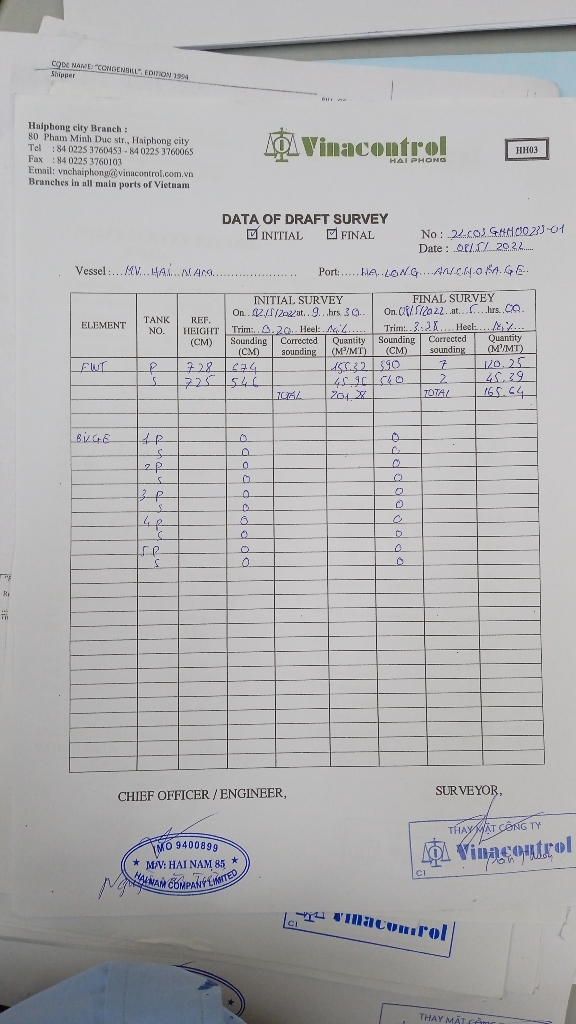 CODE NAME: "CONGENBILL". EDITION 1994
Shipper
Haiphong city Branch :
80 Pham Minh Duc str., Haiphong city
Tel : 84 0225 3760453 - 84 0225 3760065
Fax : 84 0225 3760103
Email: vnchaiphong@vinacontrol.com.vn
Branches in all main ports of Vietnam
Vinacontrol
HAI PHONG
HH03
DATA OF DRAFT SURVEY
☑ INITIAL ☑ FINAL
No :
Date : 08/5/ 2022
Vessel: MV. HAI NAM Port: HA LONG ANCHORAGE
ELEMENT TANK NO. REF. HEIGHT (CM) INITIAL SURVEY FINAL SURVEY
On 02/5/2022 at 9 hrs 30 On 08/5/2022 at 5 hrs 00
Trim: 0.20 Heel: Nil Trim: 3.28 Heel: Nil
Sounding (CM) Corrected sounding Quantity (M³/MT) Sounding (CM) Corrected sounding Quantity (M³/MT)
FWT P 728 674 155.32 390 7 120.25
S 725 546 45.96 540 2 45.39
TOTAL 201.28 TOTAL 165.64
BILGE 1 P 0 0
S 0 0
2 P 0 0
S 0 0
3 P 0 0
S 0 0
4 P 0 0
S 0 0
5 P 0 0
S 0 0
CHIEF OFFICER / ENGINEER, SURVEYOR,
IMO 9400899
M/V: HAI NAM 85
HAI NAM COMPANY LIMITED
THAY MẶT CÔNG TY
Vinacontrol
C1
Vinacontrol
C1
THAY MẶT CÔNG